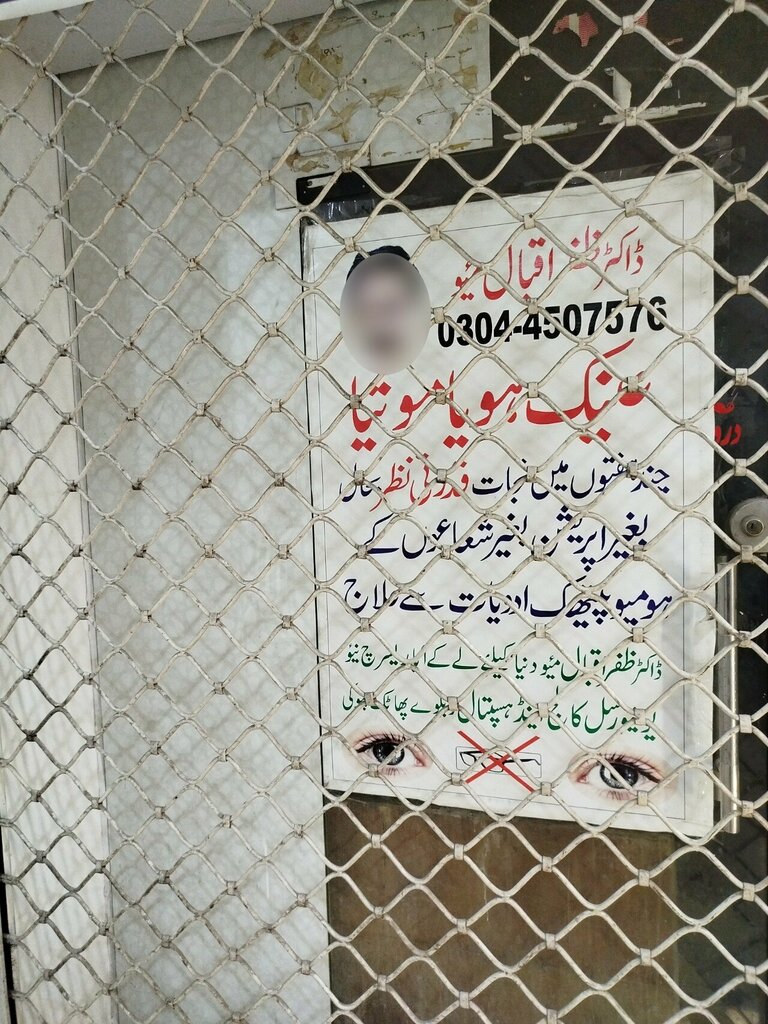 ڈاکٹر ظفر اقبال میو
0304-4507576
عینک ہو یا موتیا
چند ہفتوں میں نجات قدرتی نظر بحال
بغیر اپریشن بغیر شعاعوں کے
ہومیوپیتھک ادویات سے علاج
ڈاکٹر ظفر اقبال میو دنیا کیلئے لے کے آیا ریسرچ نیو
یونیورسل کالج اینڈ ہسپتال ریلوے پھاٹک